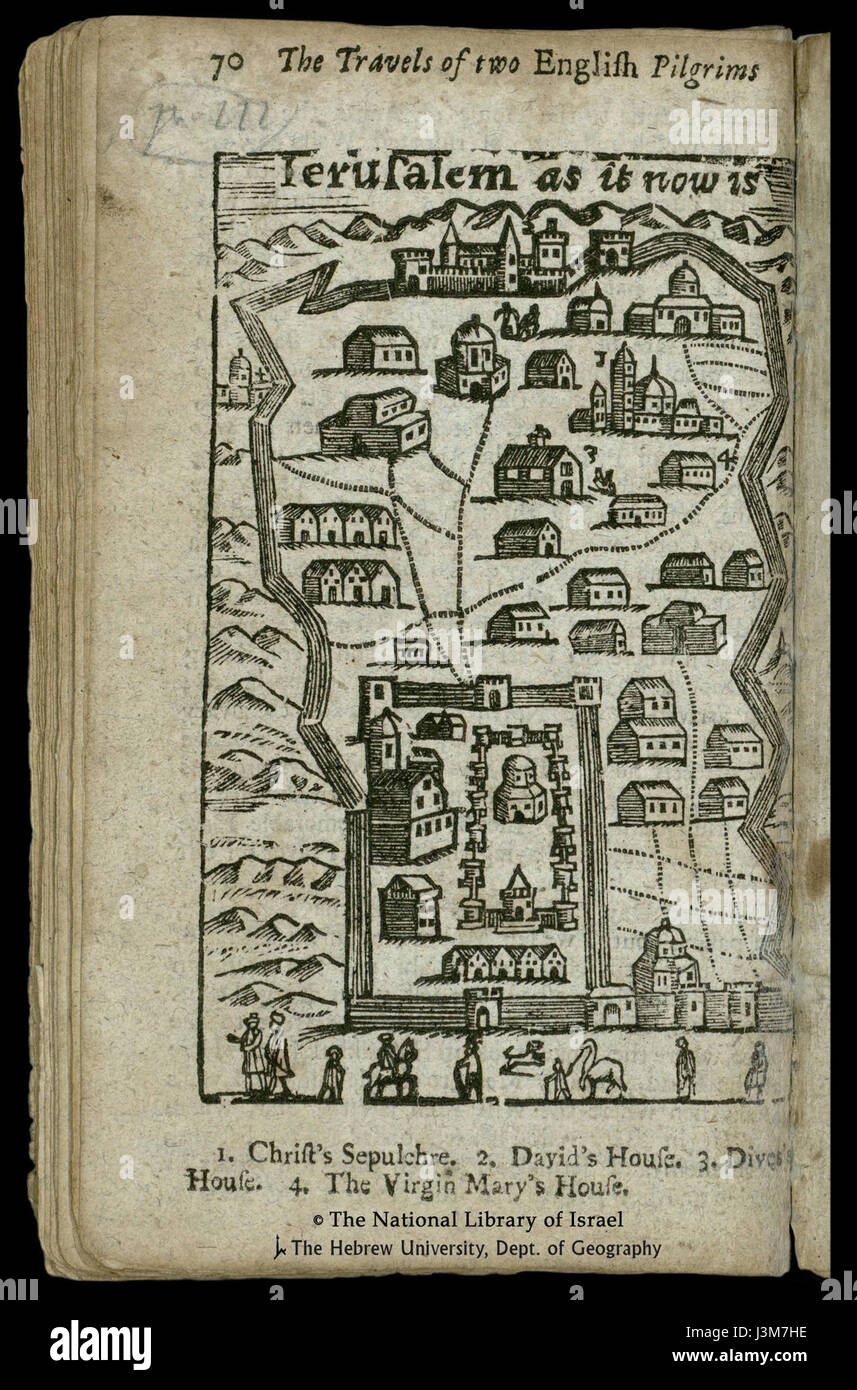 70 The Travels of two Engliſh Pilgrims
Ieruſalem as it now is
1
3
4
1. Chriſt's Sepulchre. 2. David's Houſe. 3. Dives's
Houſe. 4. The Virgin Mary's Houſe.
© The National Library of Israel
The Hebrew University, Dept. of Geography
alamy stock photo
J3M7HE
www.alamy.com